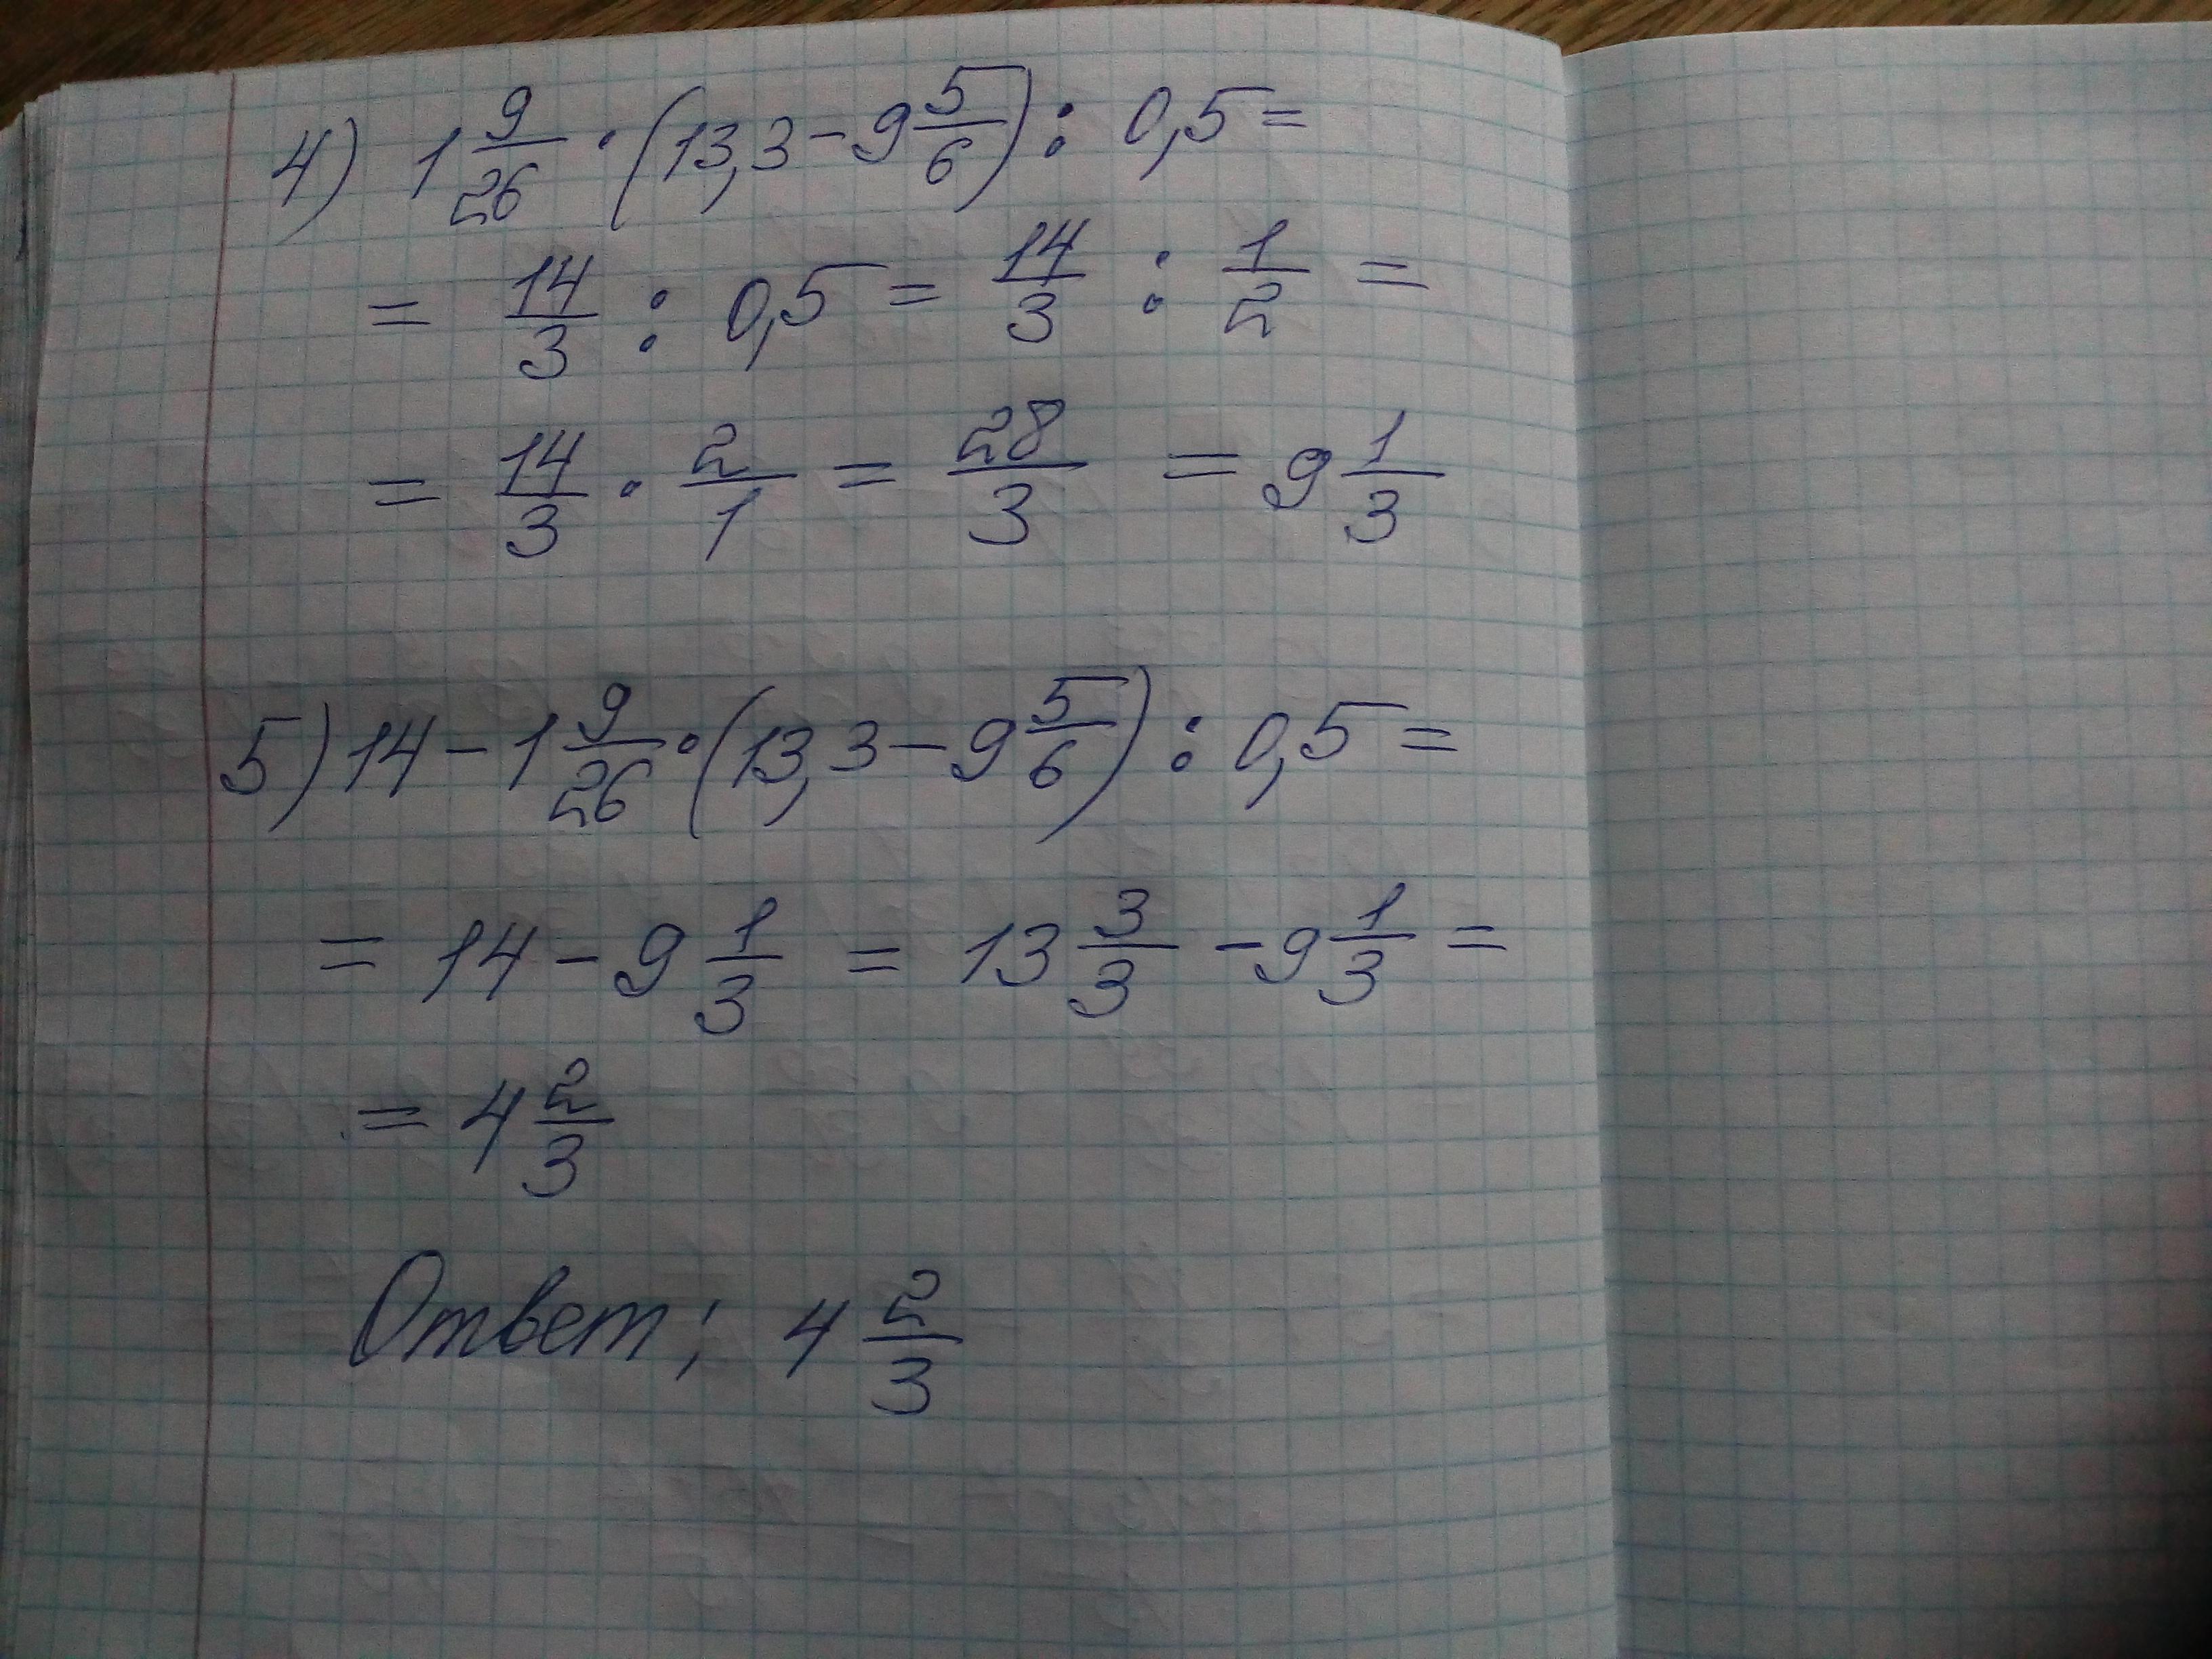 4) 1 9/26 · (13,3 - 9 5/6) : 0,5 =
= 14/3 : 0,5 = 14/3 : 1/2 =
= 14/3 · 2/1 = 28/3 = 9 1/3
5) 14 - 1 9/26 · (13,3 - 9 5/6) : 0,5 =
= 14 - 9 1/3 = 13 3/3 - 9 1/3 =
= 4 2/3
Ответ: 4 2/3